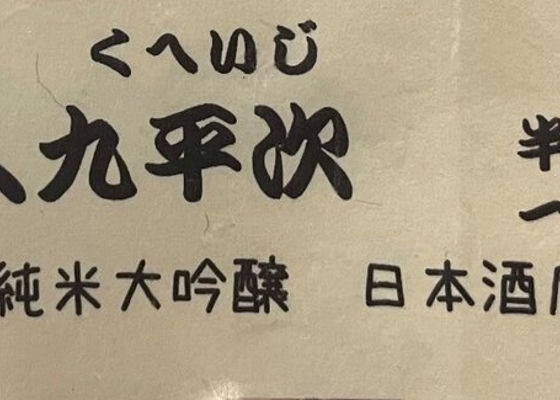 くへいじ
九平次
純米大吟醸 日本酒
半